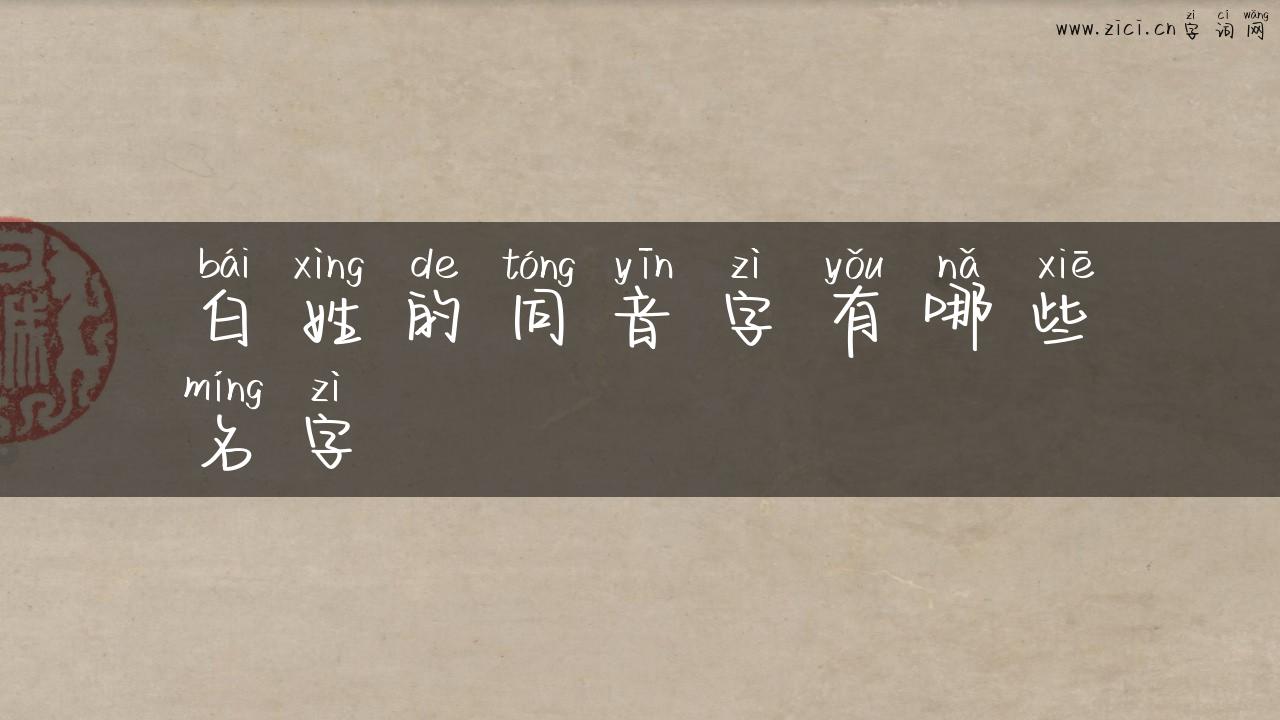 zì cí wǎng
www.zici.cn字词网
bái xìng de tóng yīn zì yǒu nǎ xiē
白姓的同音字有哪些
míng zì
名字